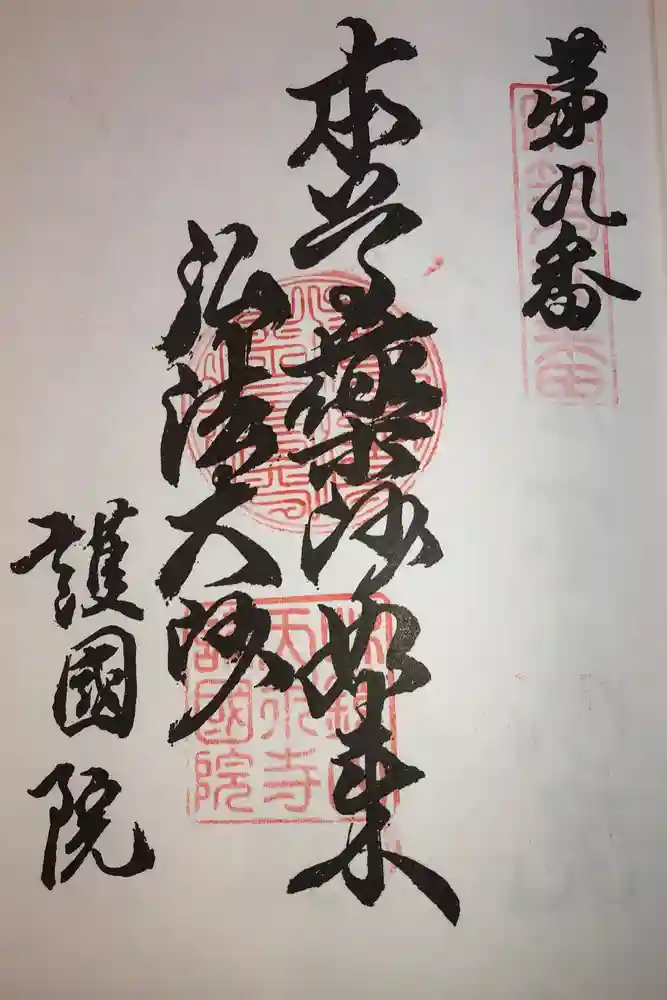 第九番
本尊薬師如来
弘法大師
護國院
天永寺
護國院